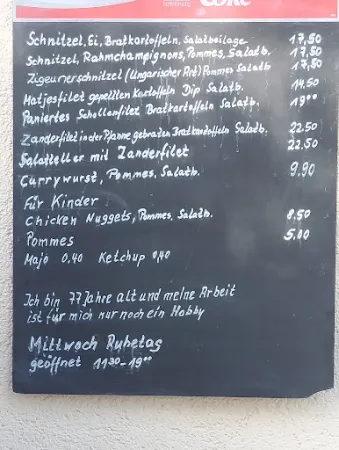 Coke
Schnitzel, Ei, Bratkartoffeln, Salatbeilage 17,50
Schnitzel, Rahmchampignons, Pommes, Salatb. 17,50
Zigeunerschnitzel (Ungarischer Art) Pommes Salatb 17,50
Matjesfilet gepellten Kartoffeln Dip Salatb. 14.50
Paniertes Schollenfilet Bratkartoffeln Salatb. 19⁰⁰
Zanderfilet in der Pfanne gebraten Bratkartoffeln Salatb. 22.50
Salatteller mit Zanderfilet 22.50
Currywurst, Pommes, Salatb. 9.90
Für Kinder
Chicken Nuggets, Pommes, Salatb. 8.50
Pommes 5.00
Majo 0.40 Ketchup 0,40
Ich bin 77 Jahre alt und meine Arbeit
ist für mich nur noch ein Hobby
Mittwoch Ruhetag
geöffnet 11³⁰-19⁰⁰